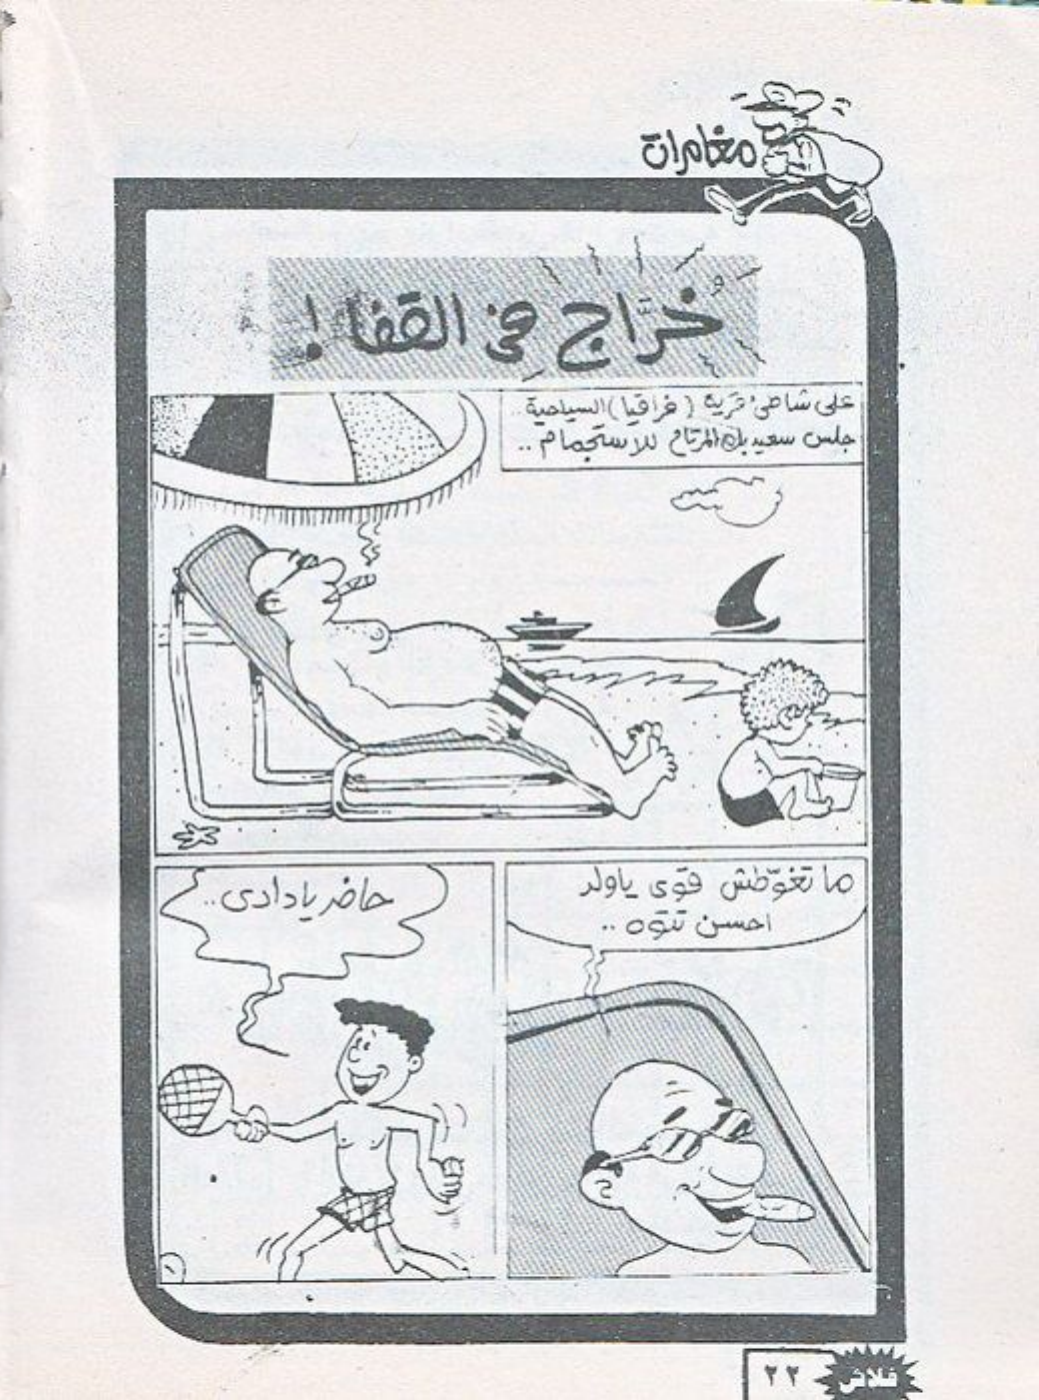 مغامرات
خُرَّاج فى القفا !
على شاطئ قرية (فراقيا) السياحية ..
جلس سعيد بك المرتاح للاستجمام ..
ما تغوّطش قوى ياولد
احسن تتوه ..
حاضر يادادى ..
١
٢٢
فلاش